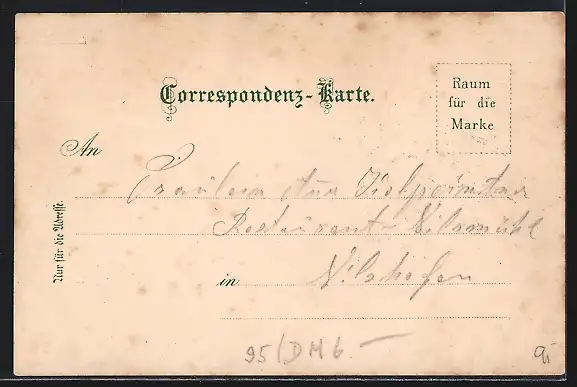 Correspondenz-Karte.
Raum
für die
Marke
An
Fräulein
Restaurant
Nur für die Adresse.
in Vilshofen
95/DM 6 —